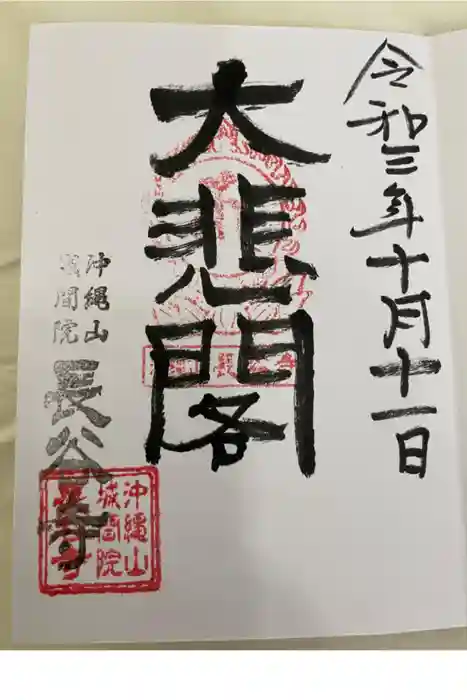 令和三年十月十一日
大悲閣
沖縄山
城間院
長谷寺
沖縄山
城間院
長谷寺